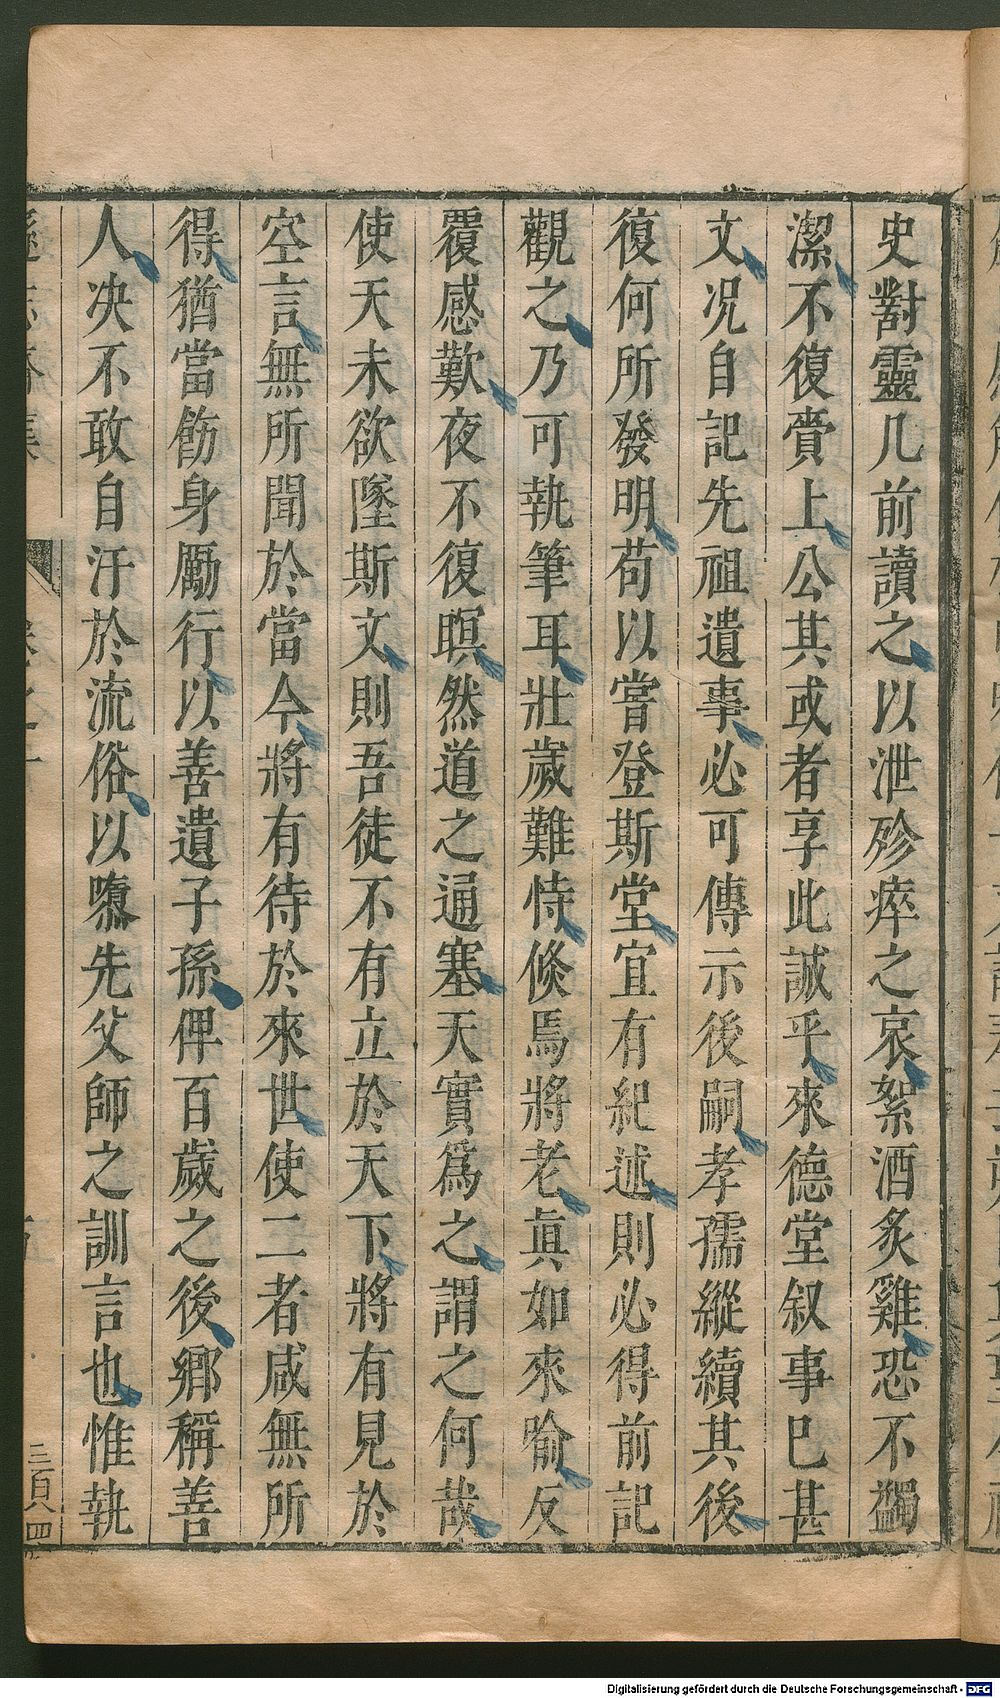 史對靈几前讀之以泄殄瘁之哀絮酒炙雞恐不蠲
潔不復賷上公其或者享此誠乎來德堂叙事巳甚
文况自記先祖遺事必可傳示後嗣孝孺縱續其後
復何所發明苟以嘗登斯堂宜有紀述則必得前記
觀之乃可執筆耳壯歲難恃倐焉將老眞如來喻反
覆感歎夜不復暝然道之通塞天實爲之謂之何哉
使天未欲墜斯文則吾徒不有立於天下將有見於
空言無所聞於當今將有待於來世使二者咸無所
得猶當飭身勵行以善遺子孫俾百歲之後鄉稱善
人决不敢自汙於流俗以隳先父師之訓言也惟執
三頁四
Digitalisierung gefördert durch die Deutsche Forschungsgemeinschaft - DFG